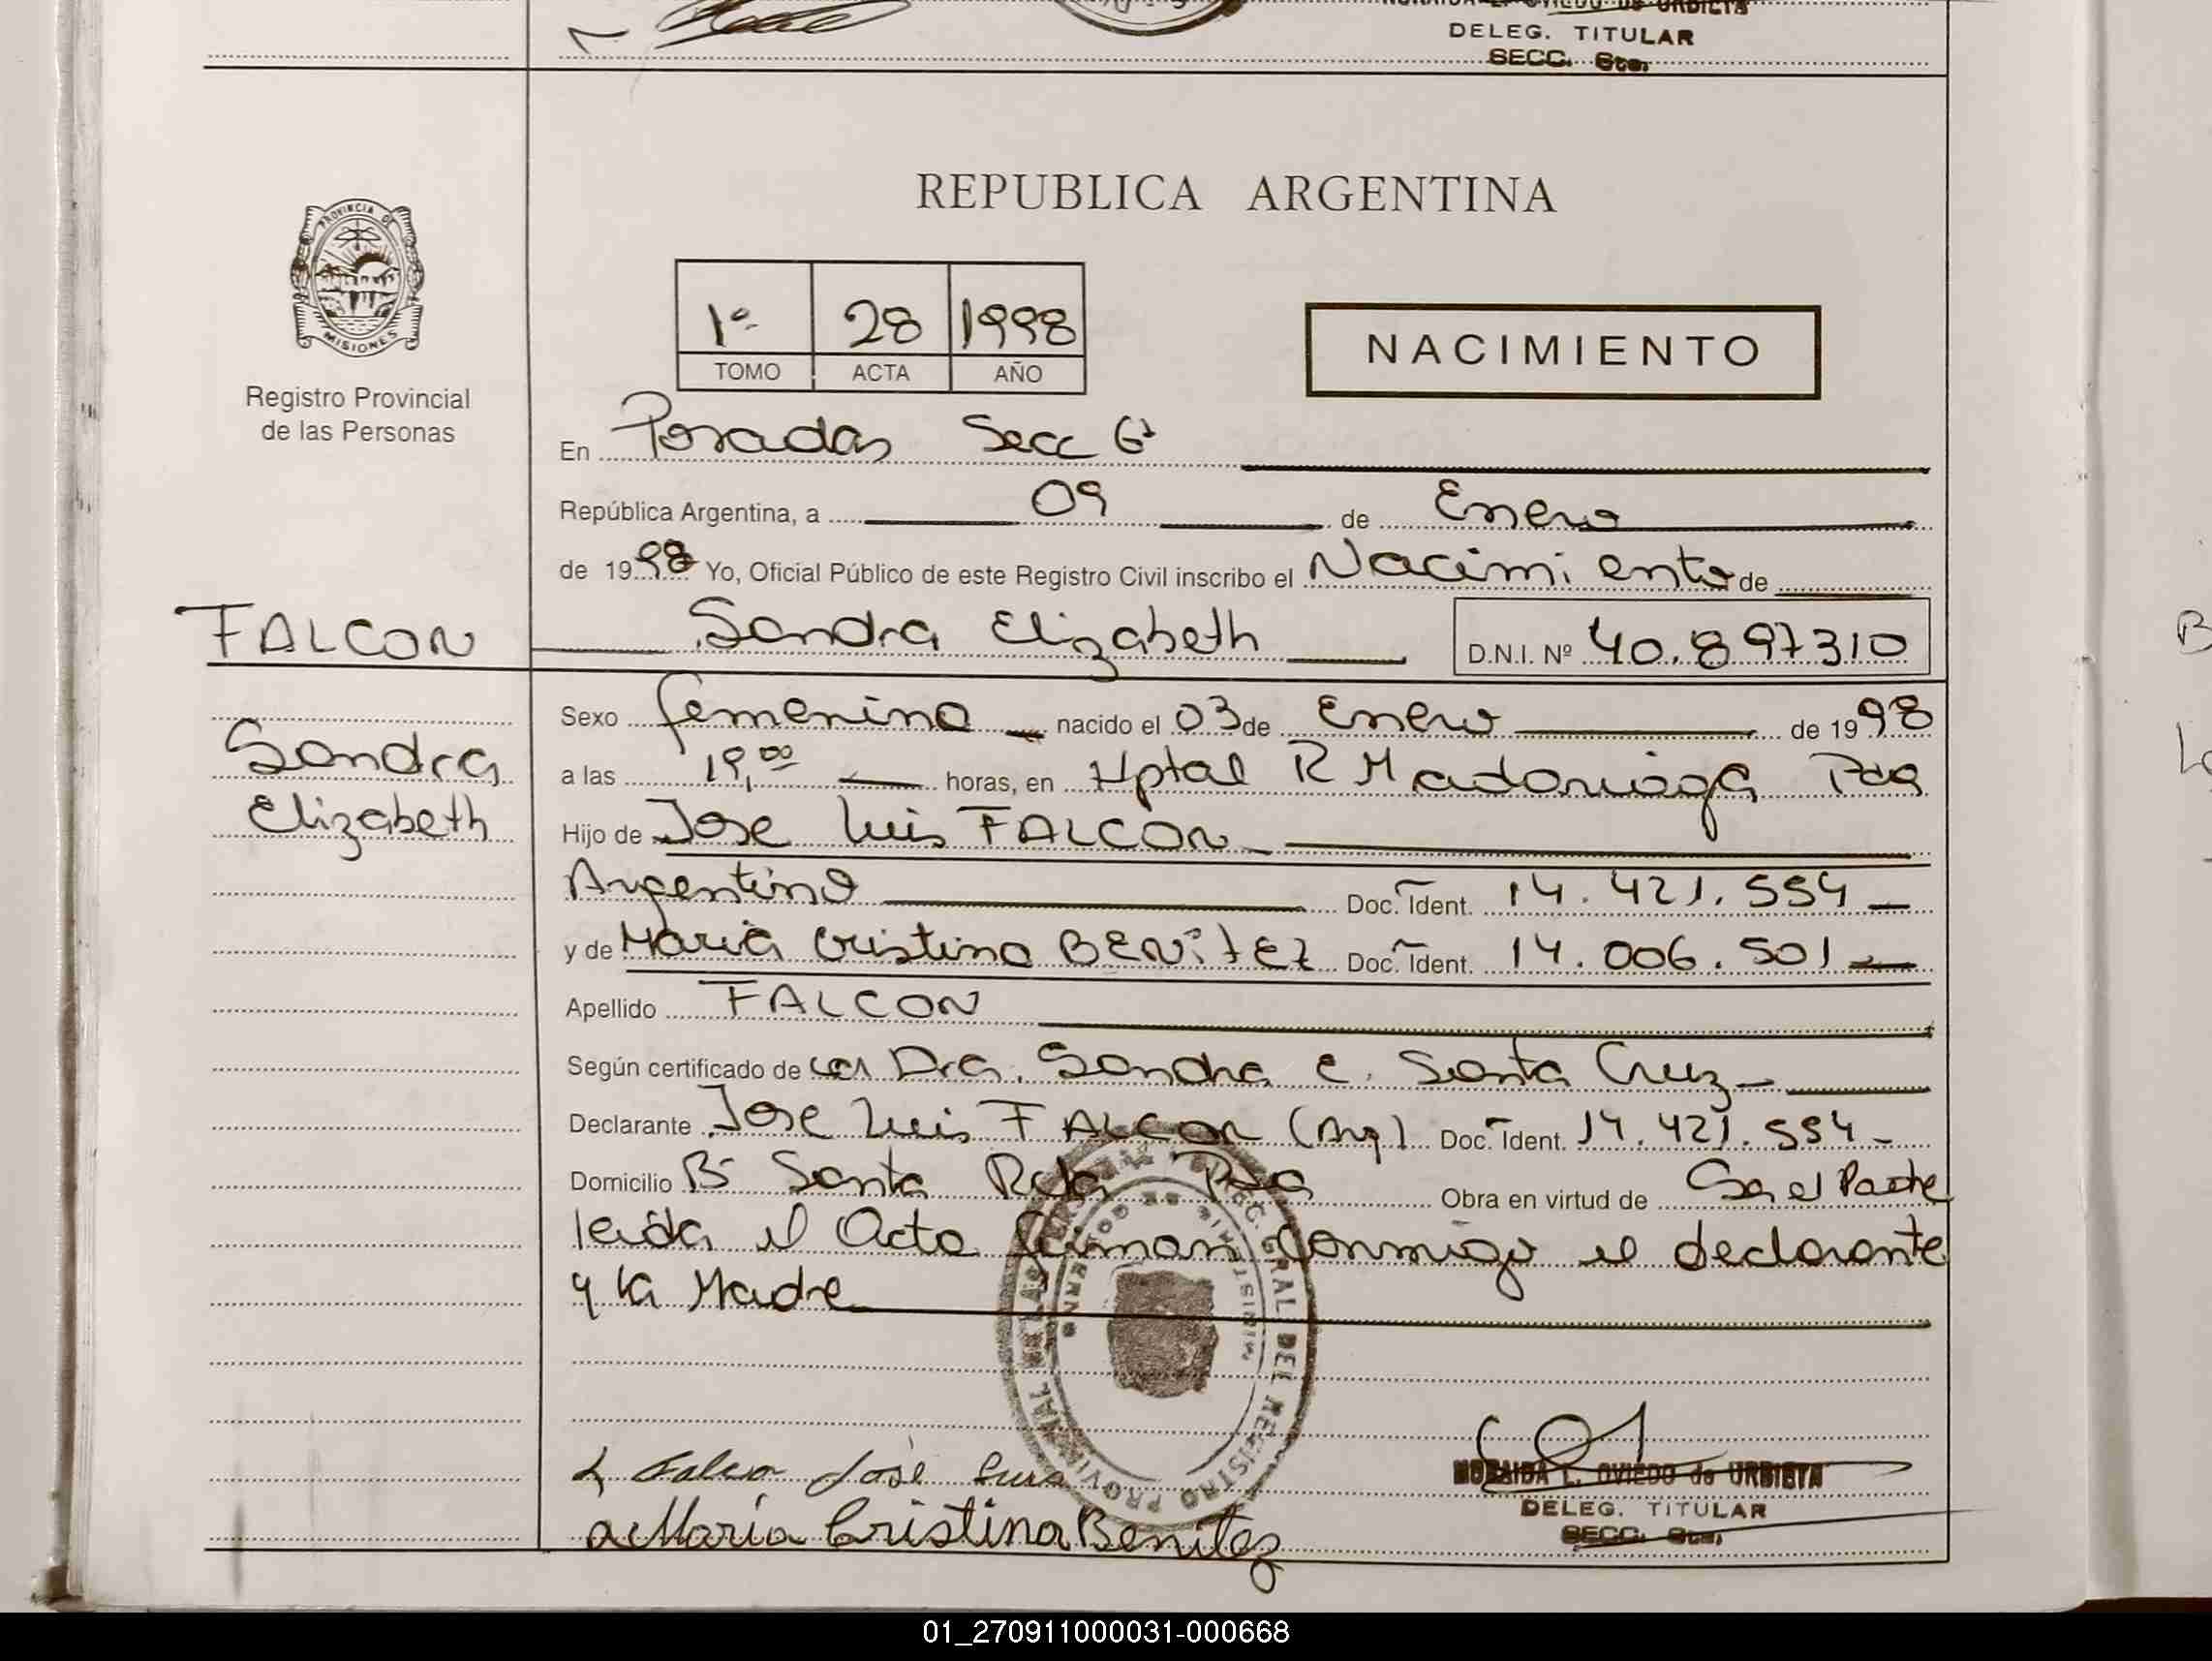 DELEG. TITULAR
SECC. 6ta.
REPUBLICA ARGENTINA
PROVINCIA DE
MISIONES
Registro Provincial
de las Personas
1º 28 1998
TOMO ACTA AÑO
NACIMIENTO
En Posadas Secc 6ª
República Argentina, a 09 de Enero
de 1998 Yo, Oficial Público de este Registro Civil inscribo el Nacimiento de
FALCON Sandra Elizabeth D.N.I. Nº 40.897310
Sandra
Elizabeth
Sexo femenino nacido el 03 de Enero de 1998
a las 19,00 horas, en Hptal R Madariaga Pdas
Hijo de Jose Luis FALCON
Argentino Doc. Ident. 14.421.554
y de Maria Cristina BENITEZ Doc. Ident. 14.006.501
Apellido FALCON
Según certificado de la Dra. Sandra E. Santa Cruz
Declarante Jose Luis FALCON (Arg) Doc. Ident. 14.421.554
Domicilio Bº Santa Rita Pdas Obra en virtud de Ser el Padre
leida el Acta firman conmigo el declarante
y la Madre
Falcon José Luis
Maria Cristina Benitez
MORAIDA L. OVIEDO de URBIETA
DELEG. TITULAR
SECC. 6ta.
01_270911000031-000668